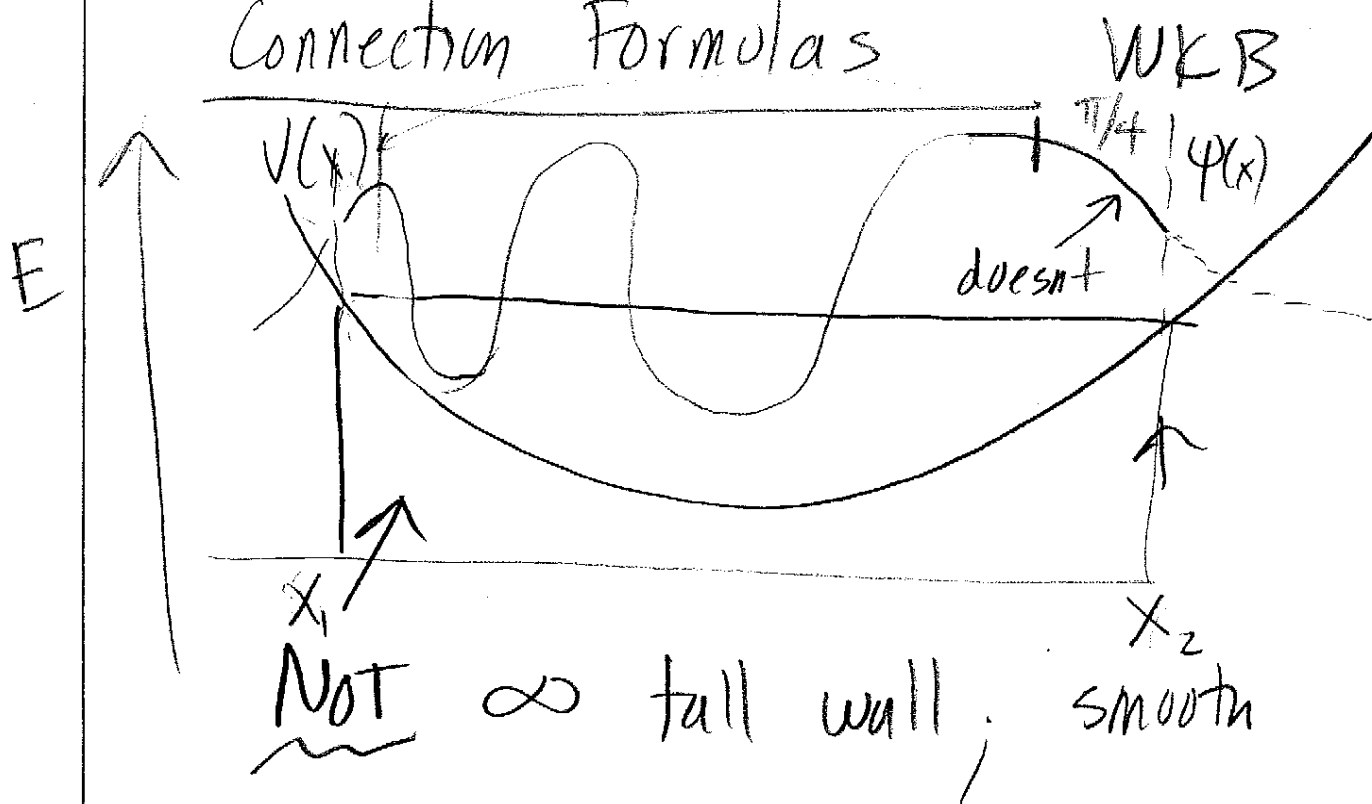 Connection Formulas WKB
π/4
V(x) ψ(x)
E
doesnt
x₁ x₂
NOT ∞ tall wall, smooth